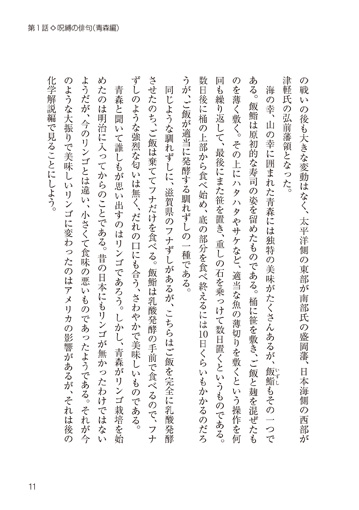 第1話◇呪縛の俳句(青森編)
の戦いの後も大きな変動はなく、太平洋側の東部が南部氏の盛岡藩、日本海側の西部が
津軽氏の弘前藩領となった。
海の幸、山の幸に囲まれた青森には独特の美味がたくさんあるが、飯鮨もその一つで
いずし
ある。飯鮨は原初的な寿司の姿を留めたものである。桶に笹を敷き、ご飯と麹を混ぜたも
のを薄く敷く。その上にハタハタやサケなど、適当な魚の薄切りを敷くという操作を何
回も繰り返して、最後にまた笹を置き、重しの石を乗っけて数日置くというものである。
数日後に桶の上部から食べ始め、底の部分を食べ終えるには10日くらいもかかるのだろ
うが、ご飯が適当に発酵する馴れずしの一種である。
同じような馴れずしに、滋賀県のフナずしがあるが、こちらはご飯を完全に乳酸発酵
させたのち、ご飯は棄ててフナだけを食べる。飯鮨は乳酸発酵の手前で食べるので、フナ
ずしのような強烈な匂いは無く、だれの口にも合う、さわやかで美味しいものである。
青森と聞いて誰しもが思い出すのはリンゴであろう。しかし、青森がリンゴ栽培を始
めたのは明治に入ってからのことである。昔の日本にもリンゴが無かったわけではない
ようだが、今のリンゴとは違い、小さくて食味の悪いものであったようである。それが今
のような大振りで美味しいリンゴに変わったのはアメリカの影響があるが、それは後の
化学解説編で見ることにしよう。
11